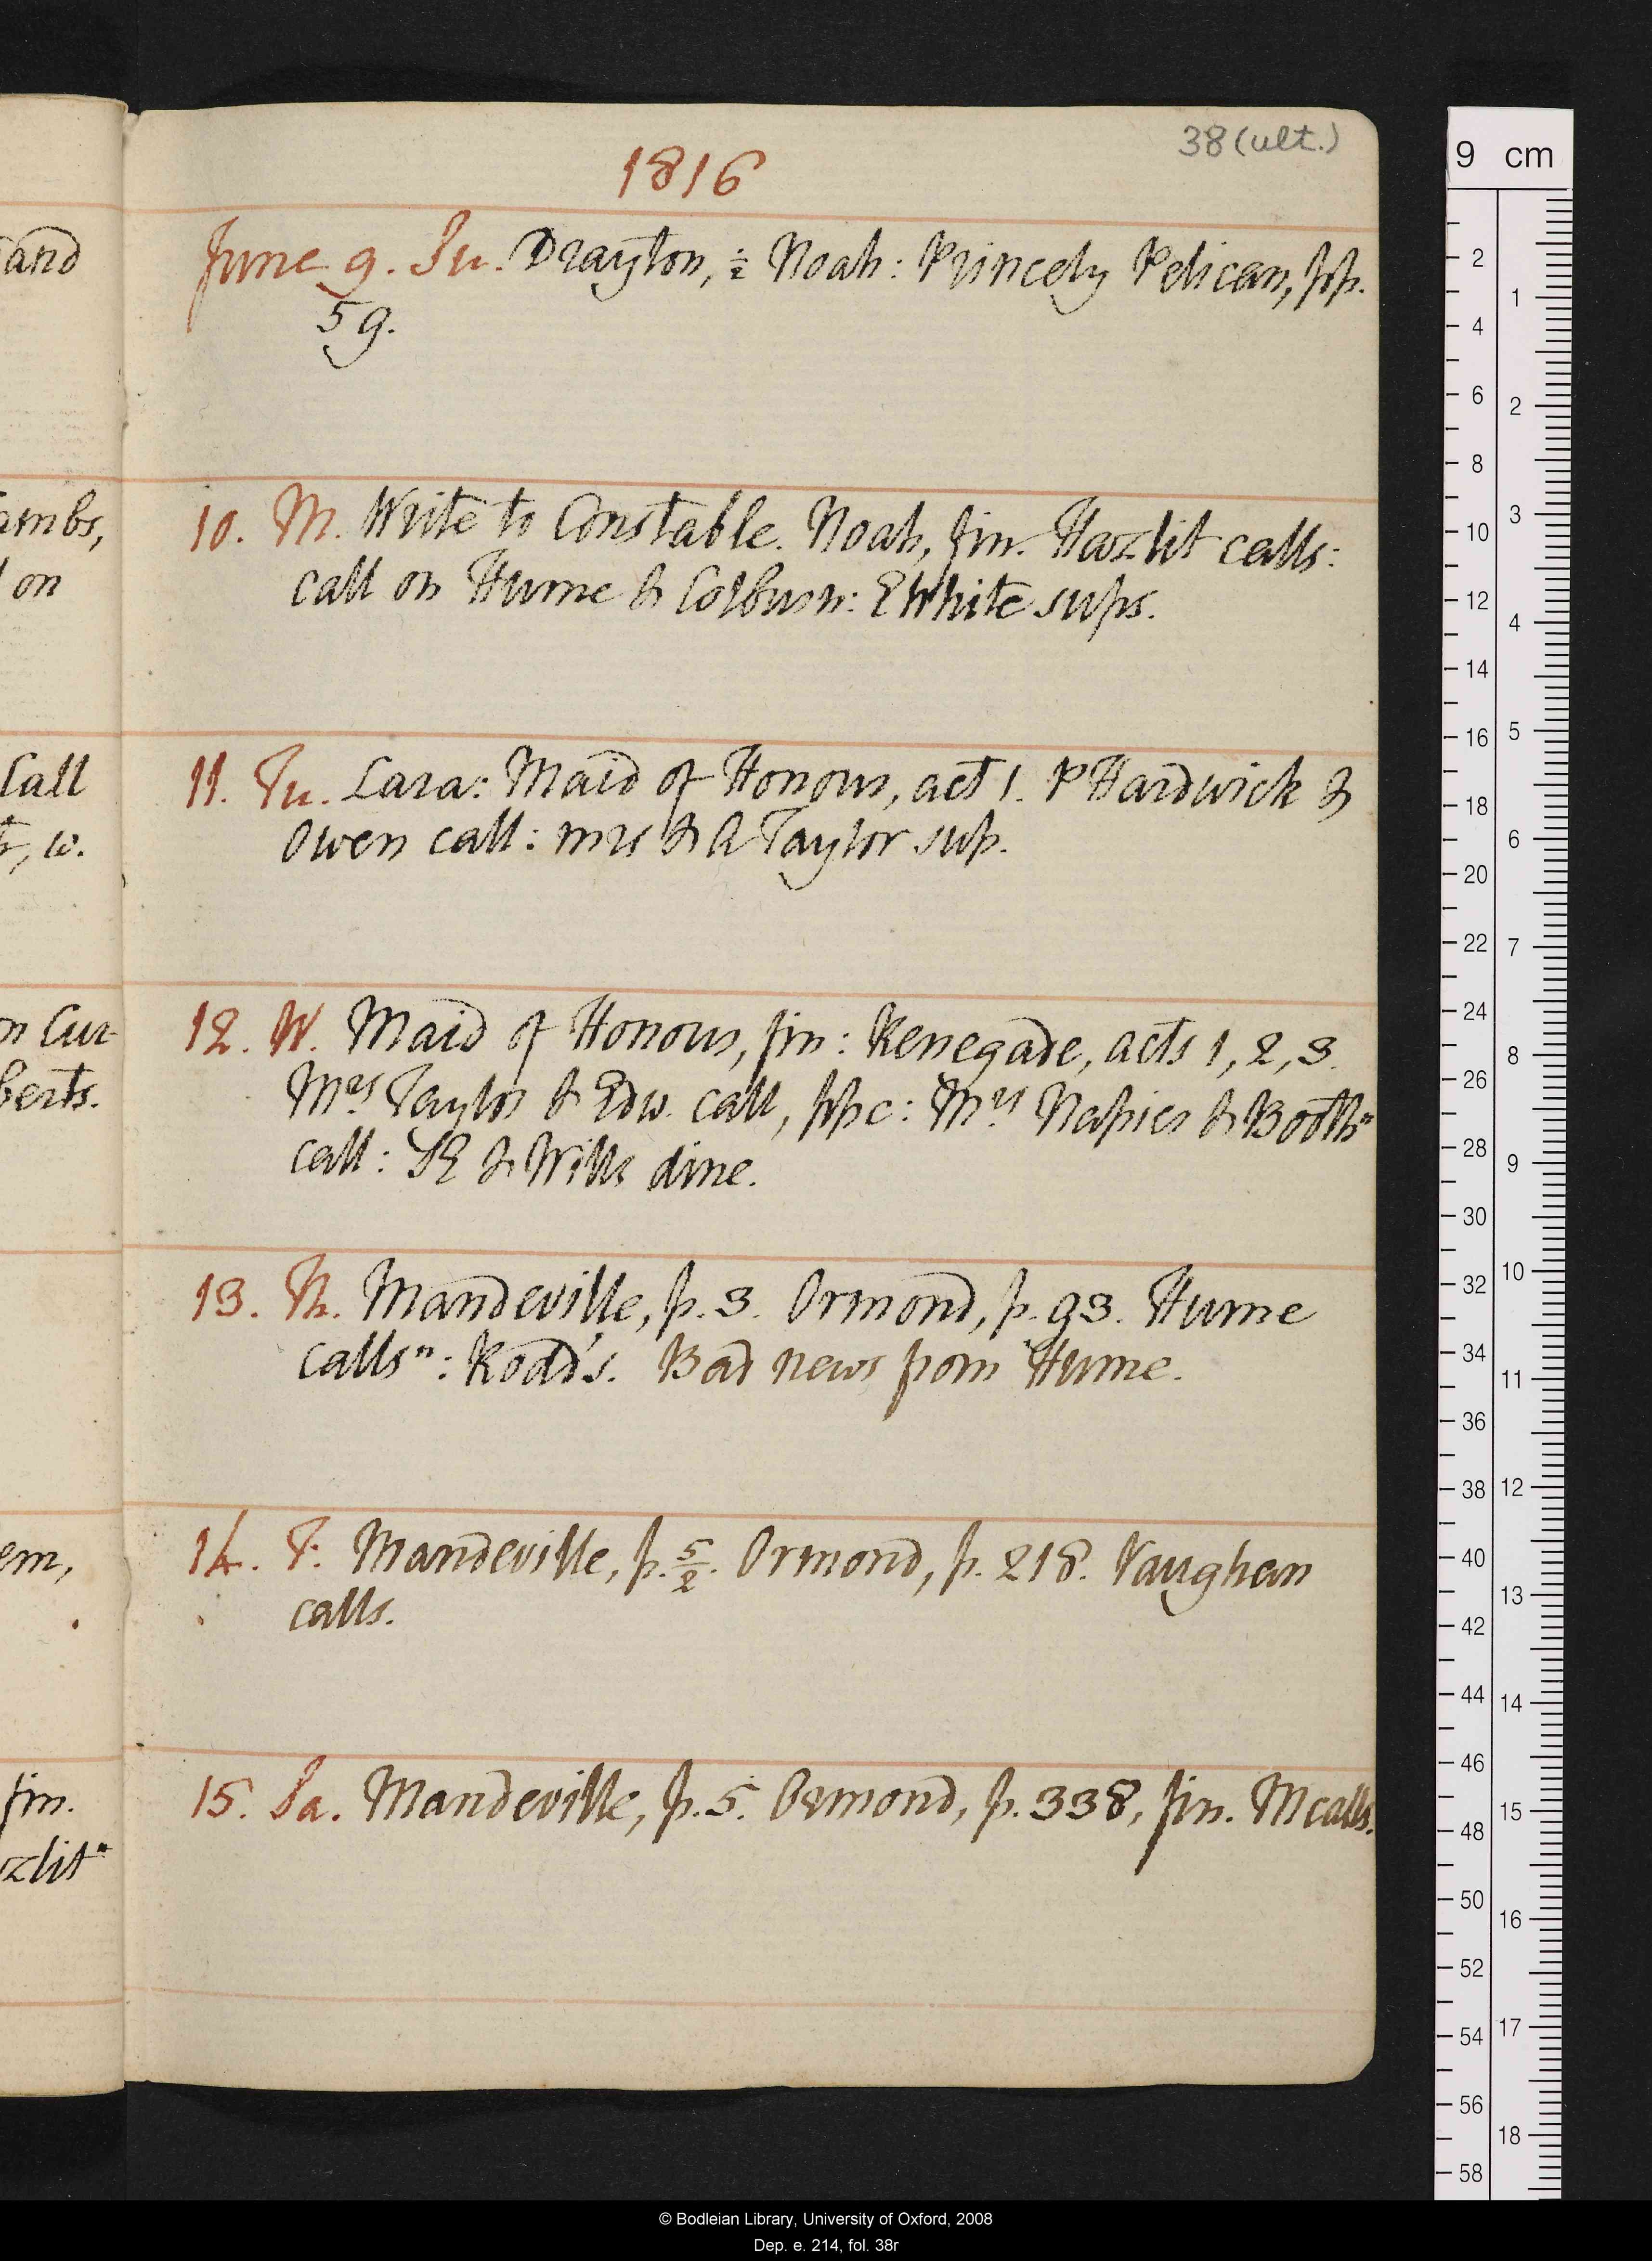 38 (ult.)
1816
and
June 9. Su. Drayton, ½ Noah: Princely Pelican, pp.
59.
ambs,
on
10. M. Write to Constable. Noah, fin. Hazlit calls:
call on Hume & Colburn: E White sups.
Call
, w.
11. Tu. Lara: Maid of Honour, act 1. P Hardwick &
Owen call: mrs & A Taylor sup.
on Cur-
berts.
12. W. Maid of Honour, fin: Renegade, acts 1, 2, 3.
Mrs Taylor & Edw. call, ppc: Mrs Napier & Booth n
call: SE & Wills dine.
13. Th. Mandeville, p. 3. Ormond, p. 93. Hume
calls n: Rodd's. Bad news from Hume.
em,
14. F. Mandeville, p. 5/2. Ormond, p. 218. Vaughan
calls.
fin.
zlit n
15. Sa. Mandeville, p. 5. Ormond, p. 338, fin. M calls.
9 cm
2 4 6 8 10 12 14 16 18 20 22 24 26 28 30 32 34 36 38 40 42 44 46 48 50 52 54 56 58
1 2 3 4 5 6 7 8 9 10 11 12 13 14 15 16 17 18
© Bodleian Library, University of Oxford, 2008
Dep. e. 214, fol. 38r